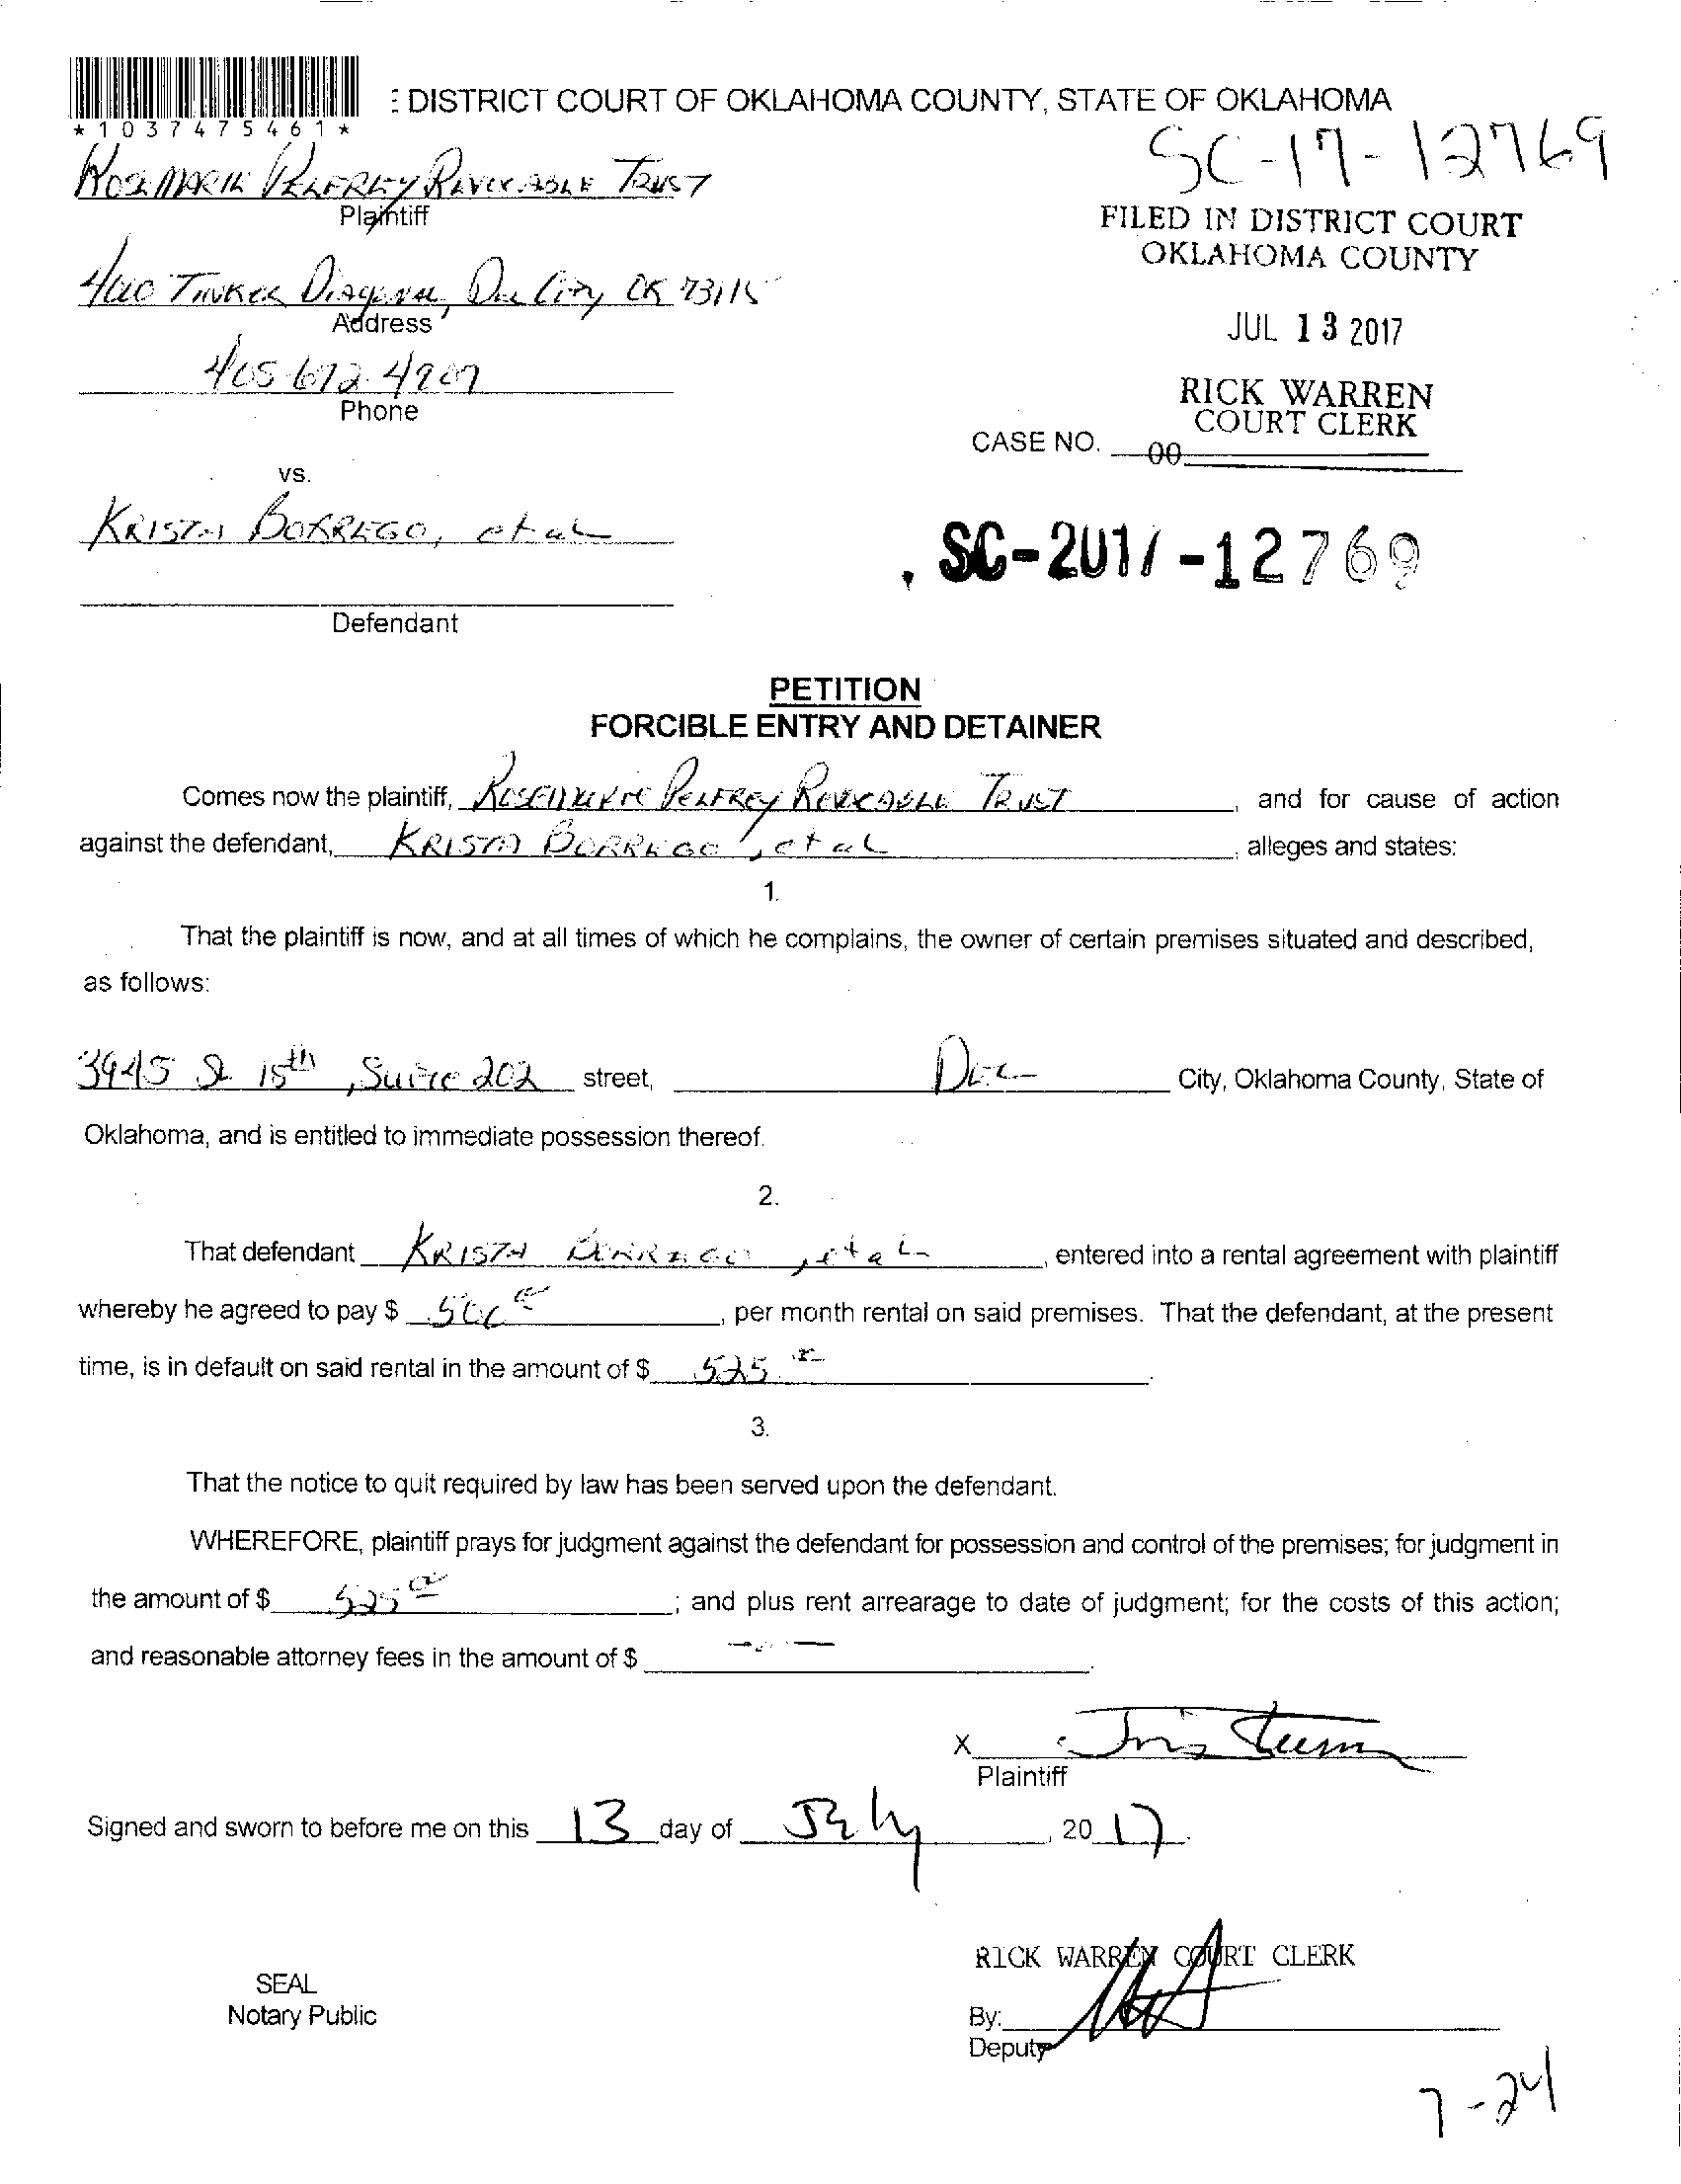 *1037475461*
DISTRICT COURT OF OKLAHOMA COUNTY, STATE OF OKLAHOMA
SC-17-12769
Plaintiff
FILED IN DISTRICT COURT
OKLAHOMA COUNTY
Tinker Diagonal, Del City, OK 73115
Address
JUL 13 2017
405-672-4907
Phone
RICK WARREN
COURT CLERK
CASE NO. 00
vs.
KRISTA BORREGO, et al
SC-2017-12769
Defendant
PETITION
FORCIBLE ENTRY AND DETAINER
Comes now the plaintiff, ROSEMARIE PELFREY REVOCABLE TRUST, and for cause of action
against the defendant, KRISTA BORREGO, et al alleges and states:
1.
That the plaintiff is now, and at all times of which he complains, the owner of certain premises situated and described,
as follows:
3945 SE 15th, Suite 202 street, Del City, Oklahoma County, State of
Oklahoma, and is entitled to immediate possession thereof.
2.
That defendant KRISTA BORREGO, et al, entered into a rental agreement with plaintiff
whereby he agreed to pay $ , per month rental on said premises. That the defendant, at the present
time, is in default on said rental in the amount of $ 525.
3.
That the notice to quit required by law has been served upon the defendant.
WHEREFORE, plaintiff prays for judgment against the defendant for possession and control of the premises; for judgment in
the amount of $ 525; and plus rent arrearage to date of judgment; for the costs of this action;
and reasonable attorney fees in the amount of $
X
Plaintiff
Signed and sworn to before me on this 13 day of July, 2017.
RICK WARREN COURT CLERK
SEAL
Notary Public
By:
Deputy
7-24